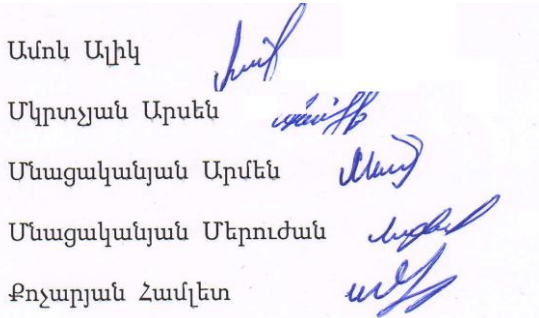 Ամոն Ալիկ
Մկրտչյան Արսեն
Մնացականյան Արմեն
Մնացականյան Մերուժան
Քոչարյան Համլետ